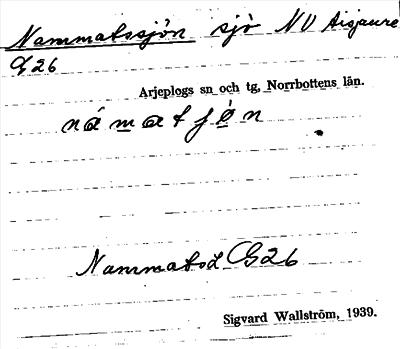 Nammatssjön sjö NV Aisjaure
G26
Arjeplogs sn och tg, Norrbottens län.
námatjòn
Nammats L G26
Sigvard Wallström, 1939.